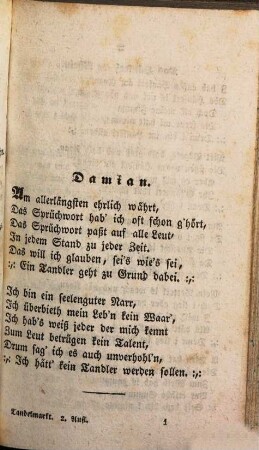 Damian.
Am allerlängsten ehrlich währt,
Das Sprüchwort hab' ich oft schon g'hört,
Das Sprüchwort paßt auf alle Leut'
In jedem Stand zu jeder Zeit.
Das will ich glauben, sei's wie's sei,
:,: Ein Tandler geht zu Grund dabei. :,:
Ich bin ein seelenguter Narr,
Ich überbieth mein Leb'n kein Waar',
Ich hab's weiß jeder der mich kennt
Zum Leut betrügen kein Talent,
Drum sag' ich es auch unverhohl'n,
:,: Ich hätt' kein Tandler werden sollen. :,:
Tandelmarkt. 2. Aufl. 1